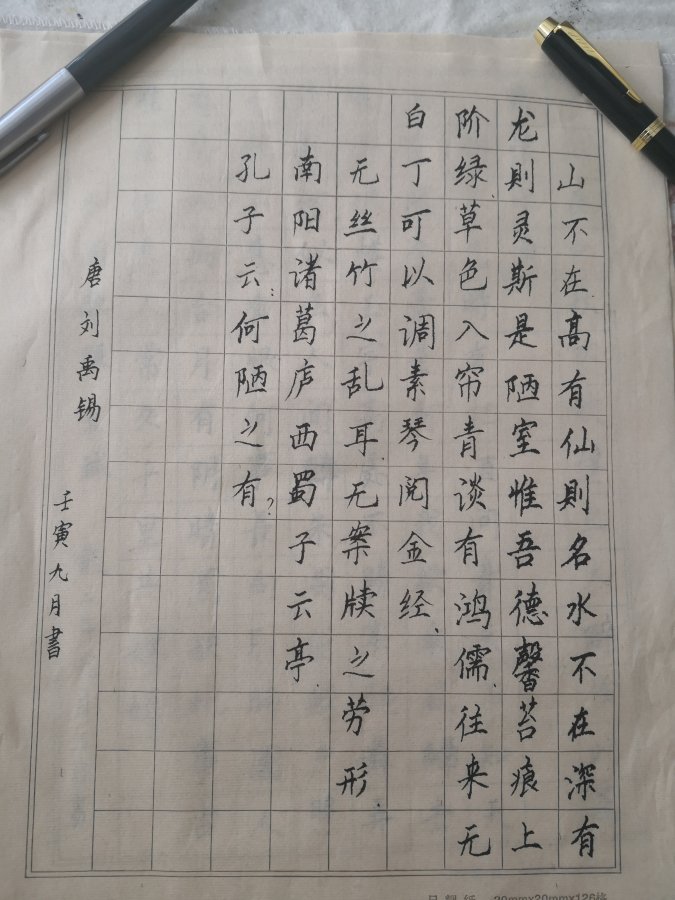 山不在高有仙則名水不在深有
龙則灵斯是陋室惟吾德馨苔痕上
阶绿、草色入帘青谈有鸿儒、往来无
白丁可以调素琴阅金经、
无丝竹之乱耳无案牍之劳形.
南阳诸葛庐西蜀子云亭.
孔子云:何陋之有?
唐刘禹锡
壬寅九月書
20mm×20mm×126格